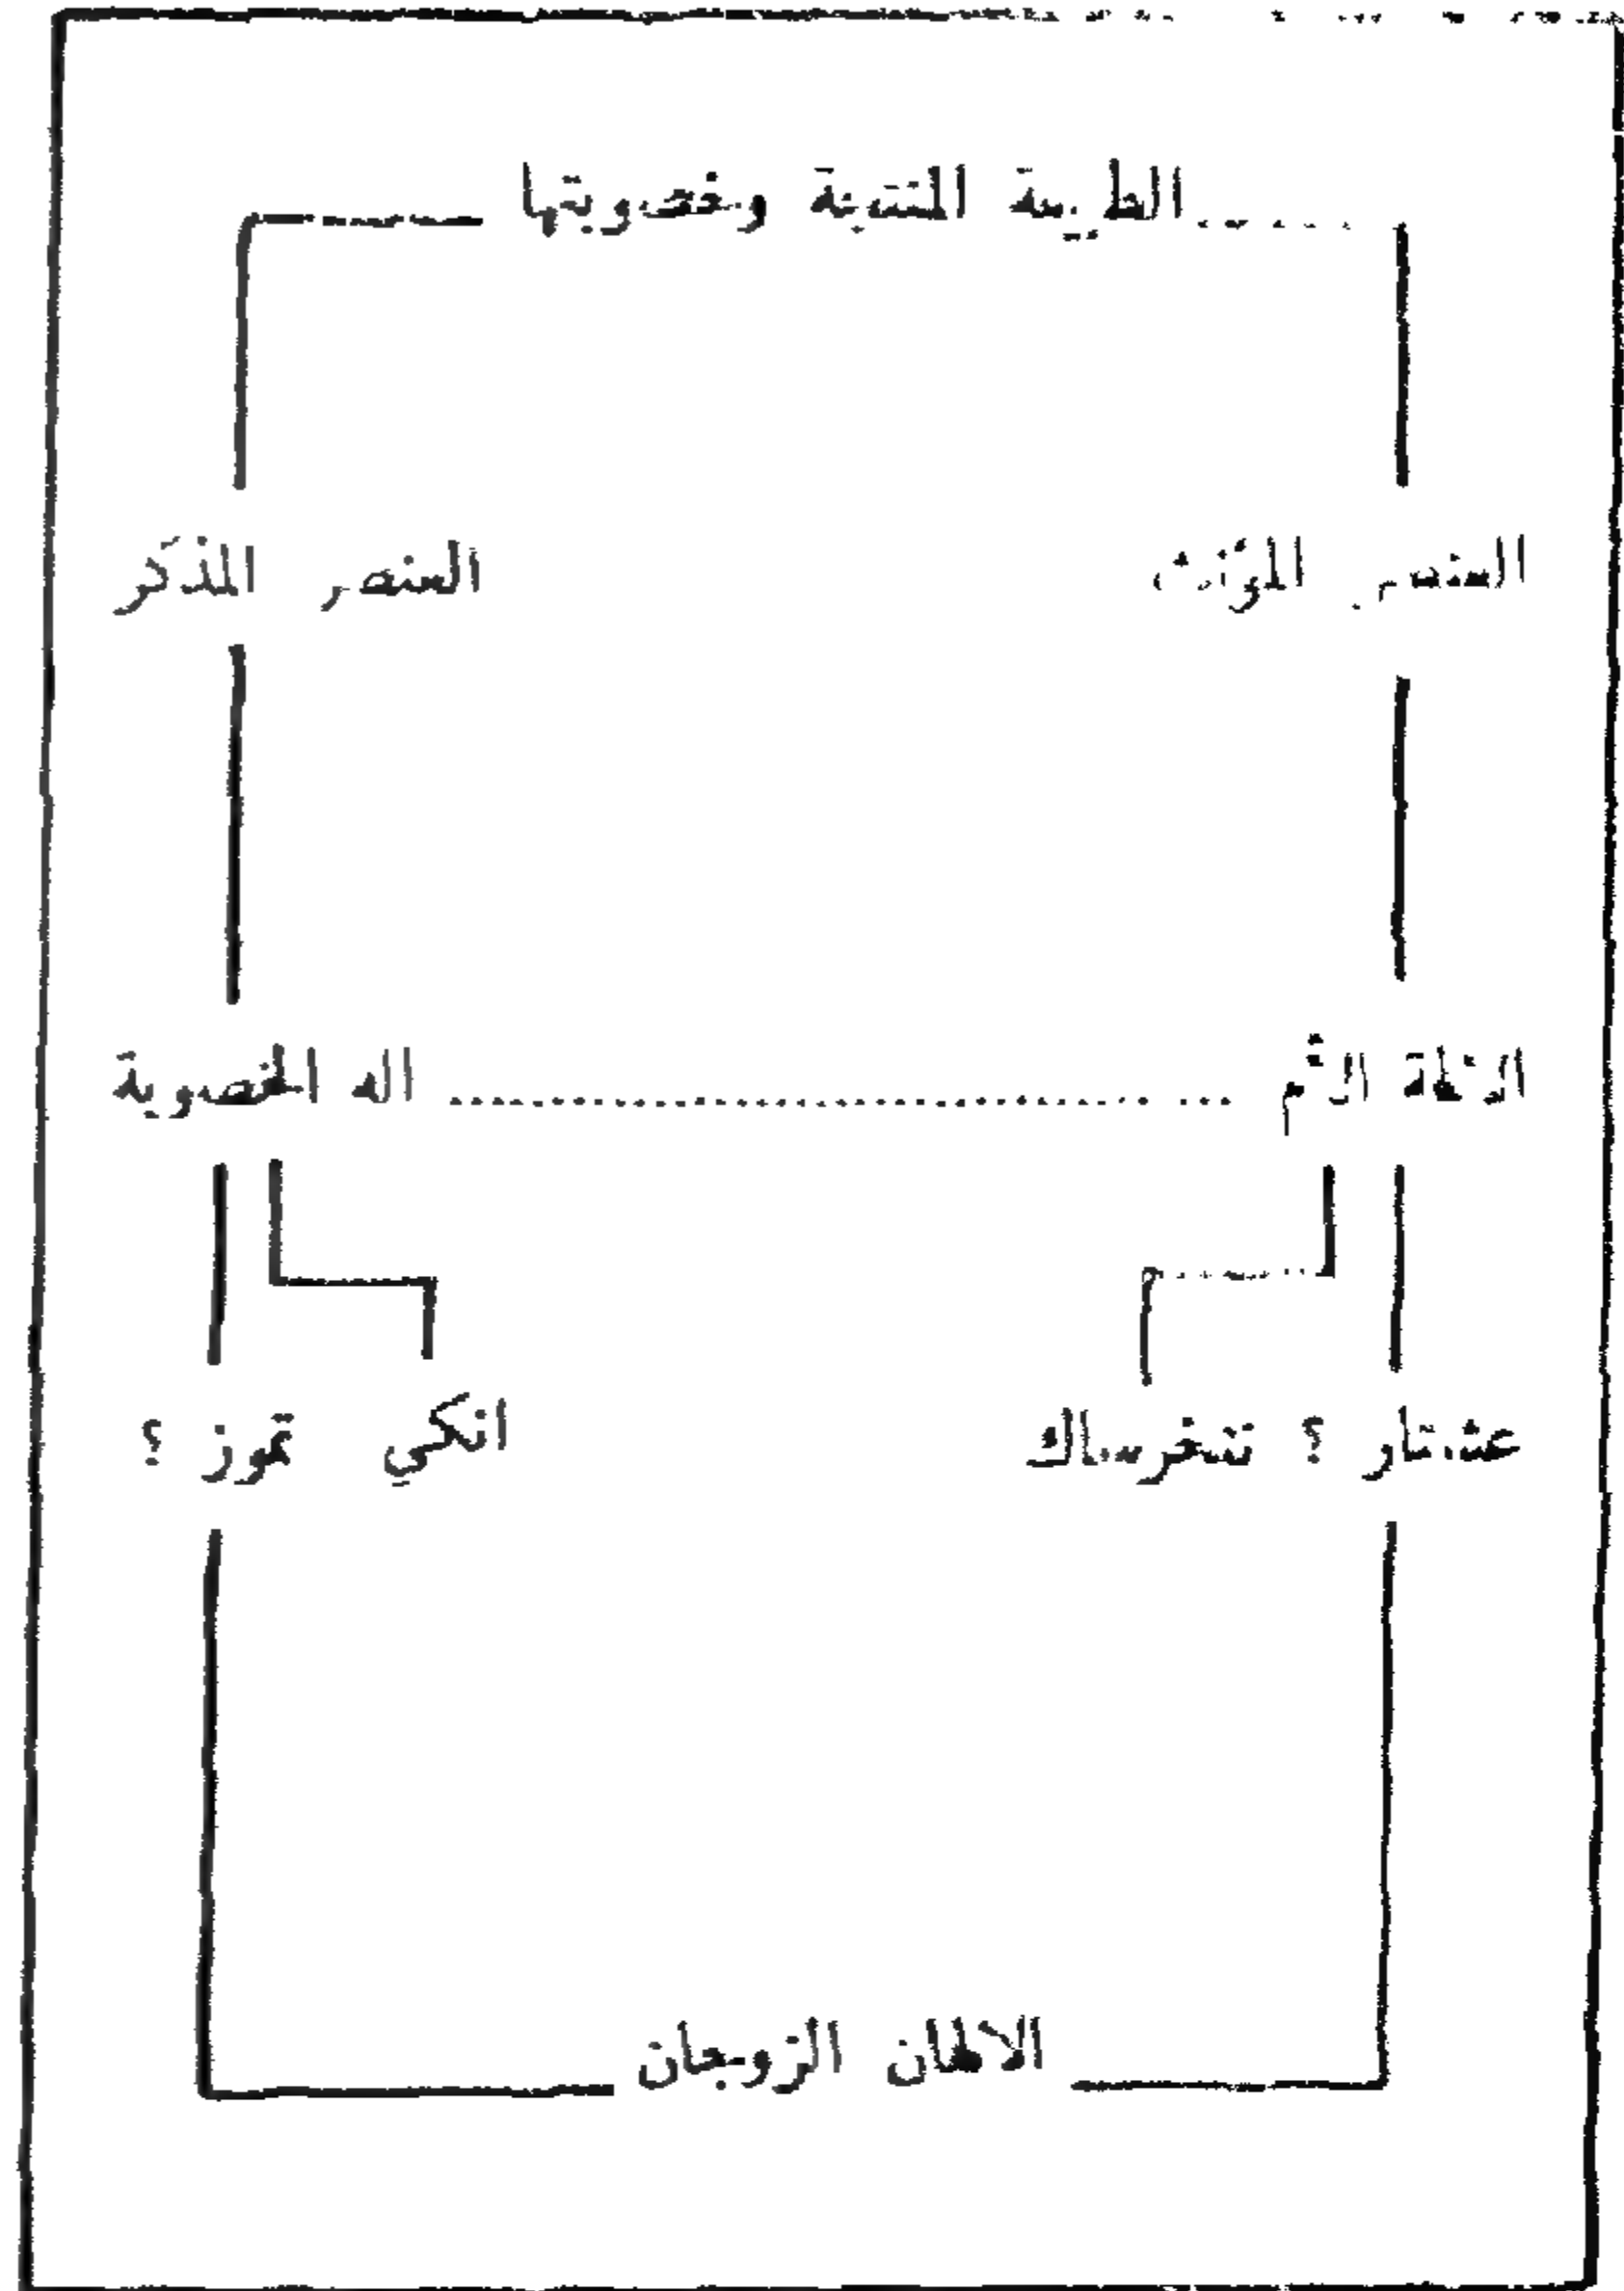 الطبيعة المنتجة وخصوبتها
العنصر المؤنث العنصر المذكر
الالهة الأم اله الخصوبة
عشتار ؟ ننخرساك انكي تموز ؟
الالهان الزوجان